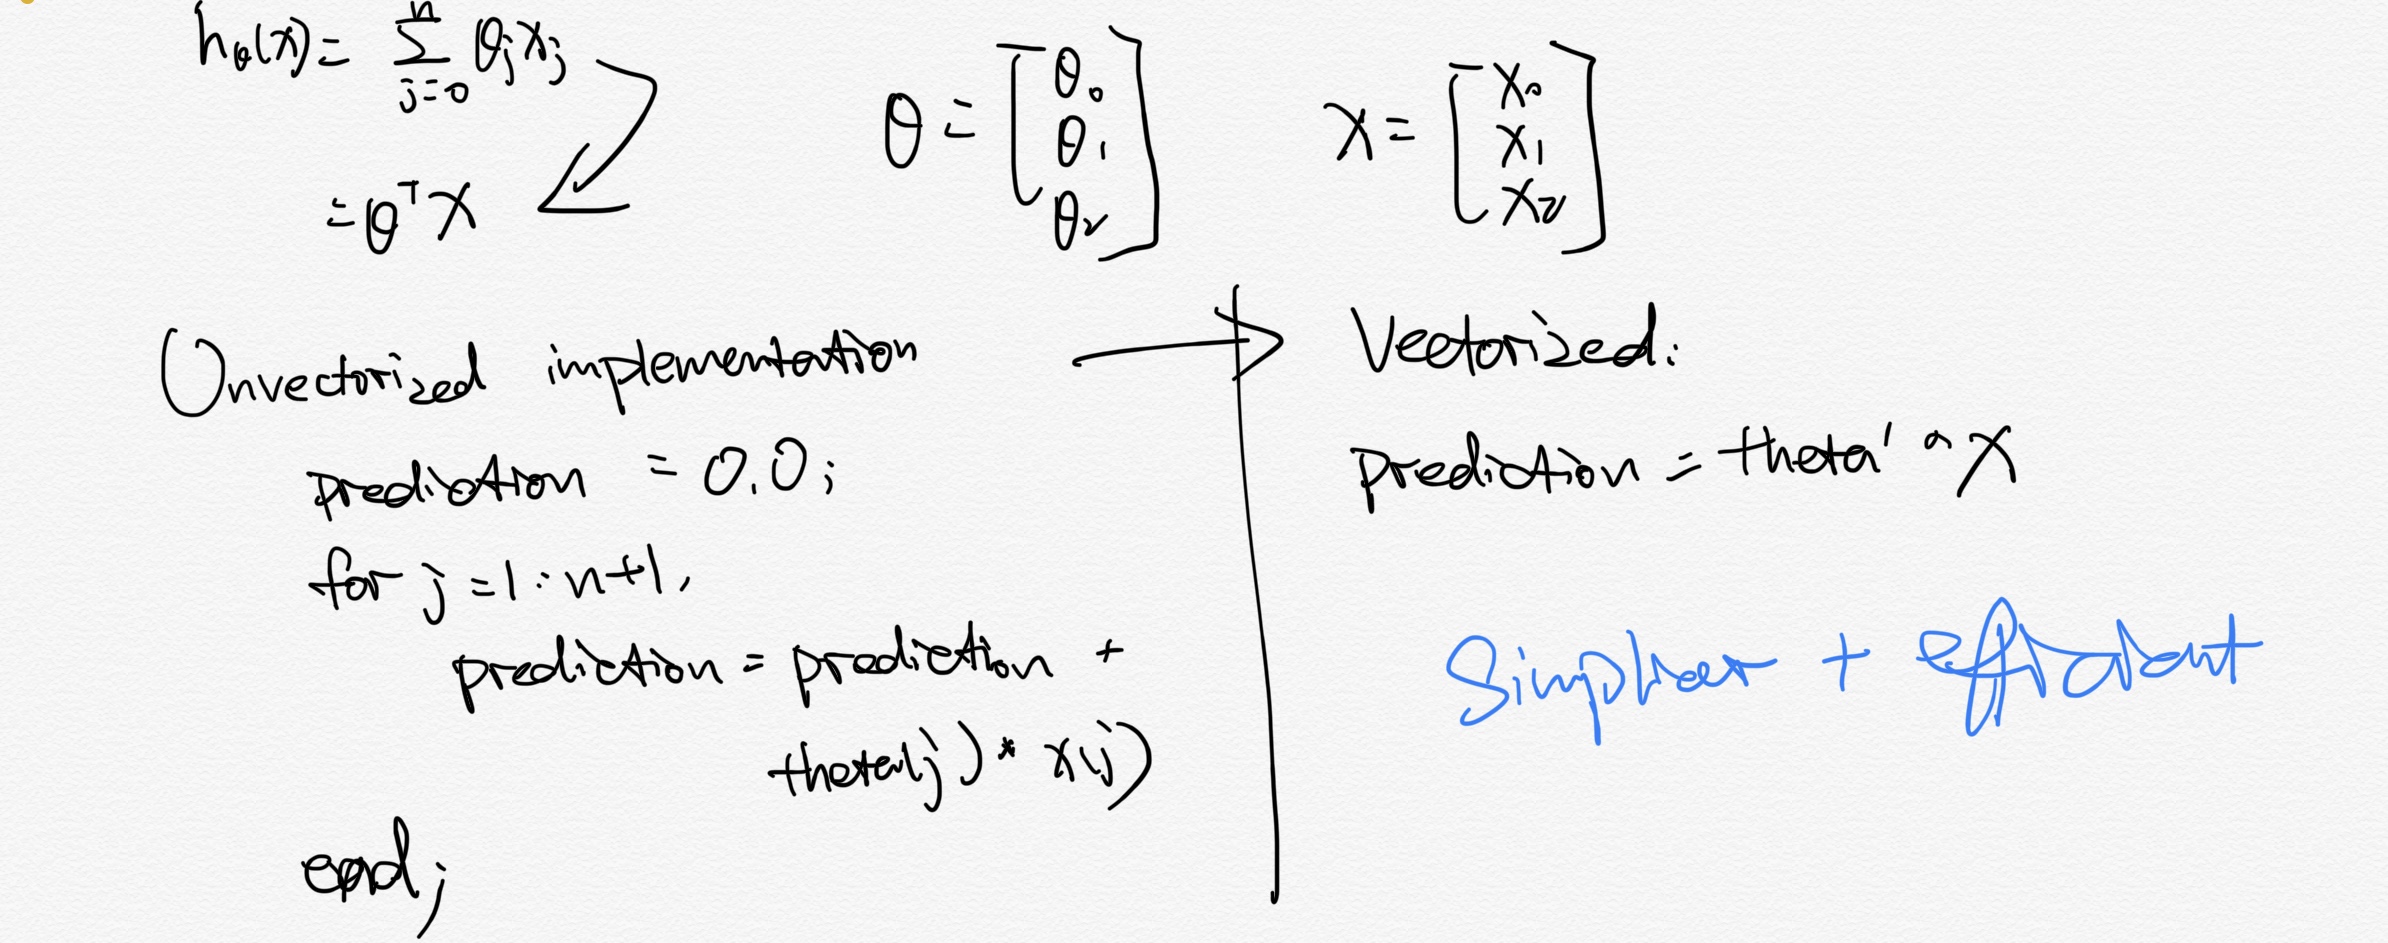 hθ(x) = Σ_{j=0}^{n} θj xj
= θᵀx
θ = [θ0 θ1 θ2]
x = [x0 x1 x2]
Unvectorized implementation
prediction = 0.0;
for j = 1 : n+1,
prediction = prediction +
theta(j) * x(j)
end;
Vectorized:
prediction = theta' * x
Simplier + efficient